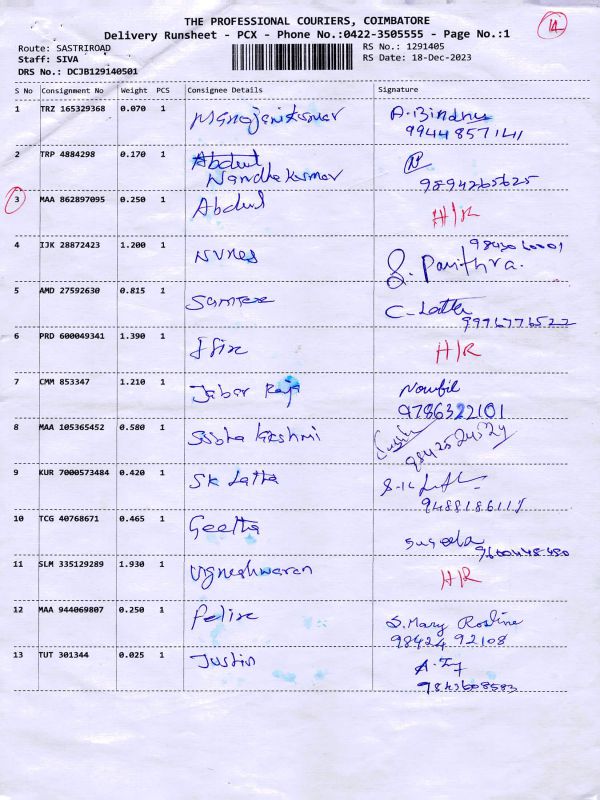 THE PROFESSIONAL COURIERS, COIMBATORE
14
Delivery Runsheet - PCX - Phone No.:0422-3505555 - Page No.:1
Route: SASTRIROAD
RS No.: 1291405
Staff: SIVA
RS Date: 18-Dec-2023
DRS No.: DCJB129140501
S No Consignment No Weight PCS Consignee Details Signature
1 TRZ 165329368 0.070 1 Manojanikumar A. Bindhu
9944857141
2 TRP 4884298 0.170 1 Abdul
Nandhakumar
9894265625
3 MAA 862897095 0.250 1 Abdul H/R
4 IJK 28872423 1.200 1 Nunes
S. Pavithra.
5 AMD 27592630 0.815 1 C-Latha
9976776522
6 PRD 600049341 1.390 1 H/R
7 CMM 853347 1.210 1 Jabar Raja Noufil
9786322101
8 MAA 105365452 0.580 1
9842524524
9 KUR 7000573484 0.420 1 SK Latha
10 TCG 40768671 0.465 1 Geetha Suseela
9600448480
11 SLM 335129289 1.930 1 Vigneshwaran H/R
12 MAA 944069807 0.250 1 Felix S. Mary Rosline
98424 92108
13 TUT 301344 0.025 1 Justin
9843608583